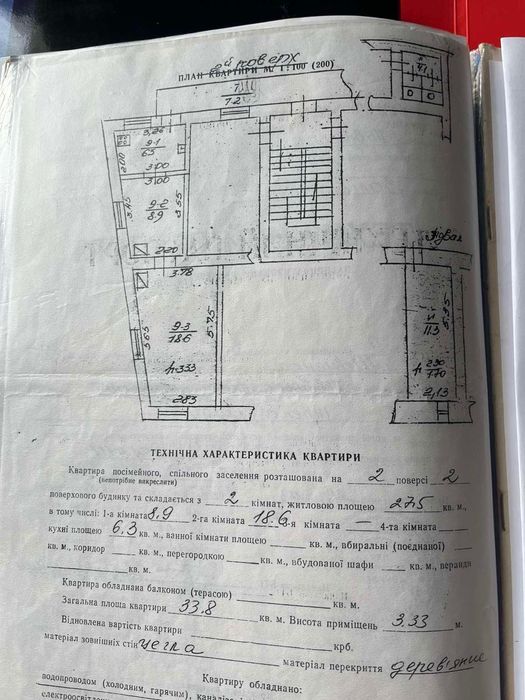 2й поверх
ПЛАН КВАРТИРИ М. 1 : 100 (200)
7-2
3,26
9-1
6.3
2.00
3.00
3.00
9-2
8.9
3.45
3.55
2.20
3.78
9-3
18.6
5.65
5.75
h-3.33
2.83
Підвал
11.3
5.35
h 2.30
2,13
ТЕХНІЧНА ХАРАКТЕРИСТИКА КВАРТИРИ
Квартира посімейного, спільного заселення розташована на 2 поверсі 2
(непотрібне викреслити)
поверхового будинку та складається з 2 кімнат, житловою площею 27.5 кв. м.,
в тому числі: 1-а кімната 8,9 2-га кімната 18.6 -я кімната — 4-та кімната
кухні площею 6,3 кв. м., ванної кімнати площею кв. м., вбиральні (поєднаної)
кв. м., коридор кв. м., перегородкою кв. м., вбудованої шафи кв. м., веранди
кв. м.
Квартира обладнана балконом (терасою) кв. м.
Загальна площа квартири 33.8 кв. м. Висота приміщень 3,33 м.
Відновлена вартість квартири крб.
матеріал зовнішніх стін цегла матеріал перекриття дерев'яне
Квартиру обладнано:
водопроводом (холодним, гарячим),